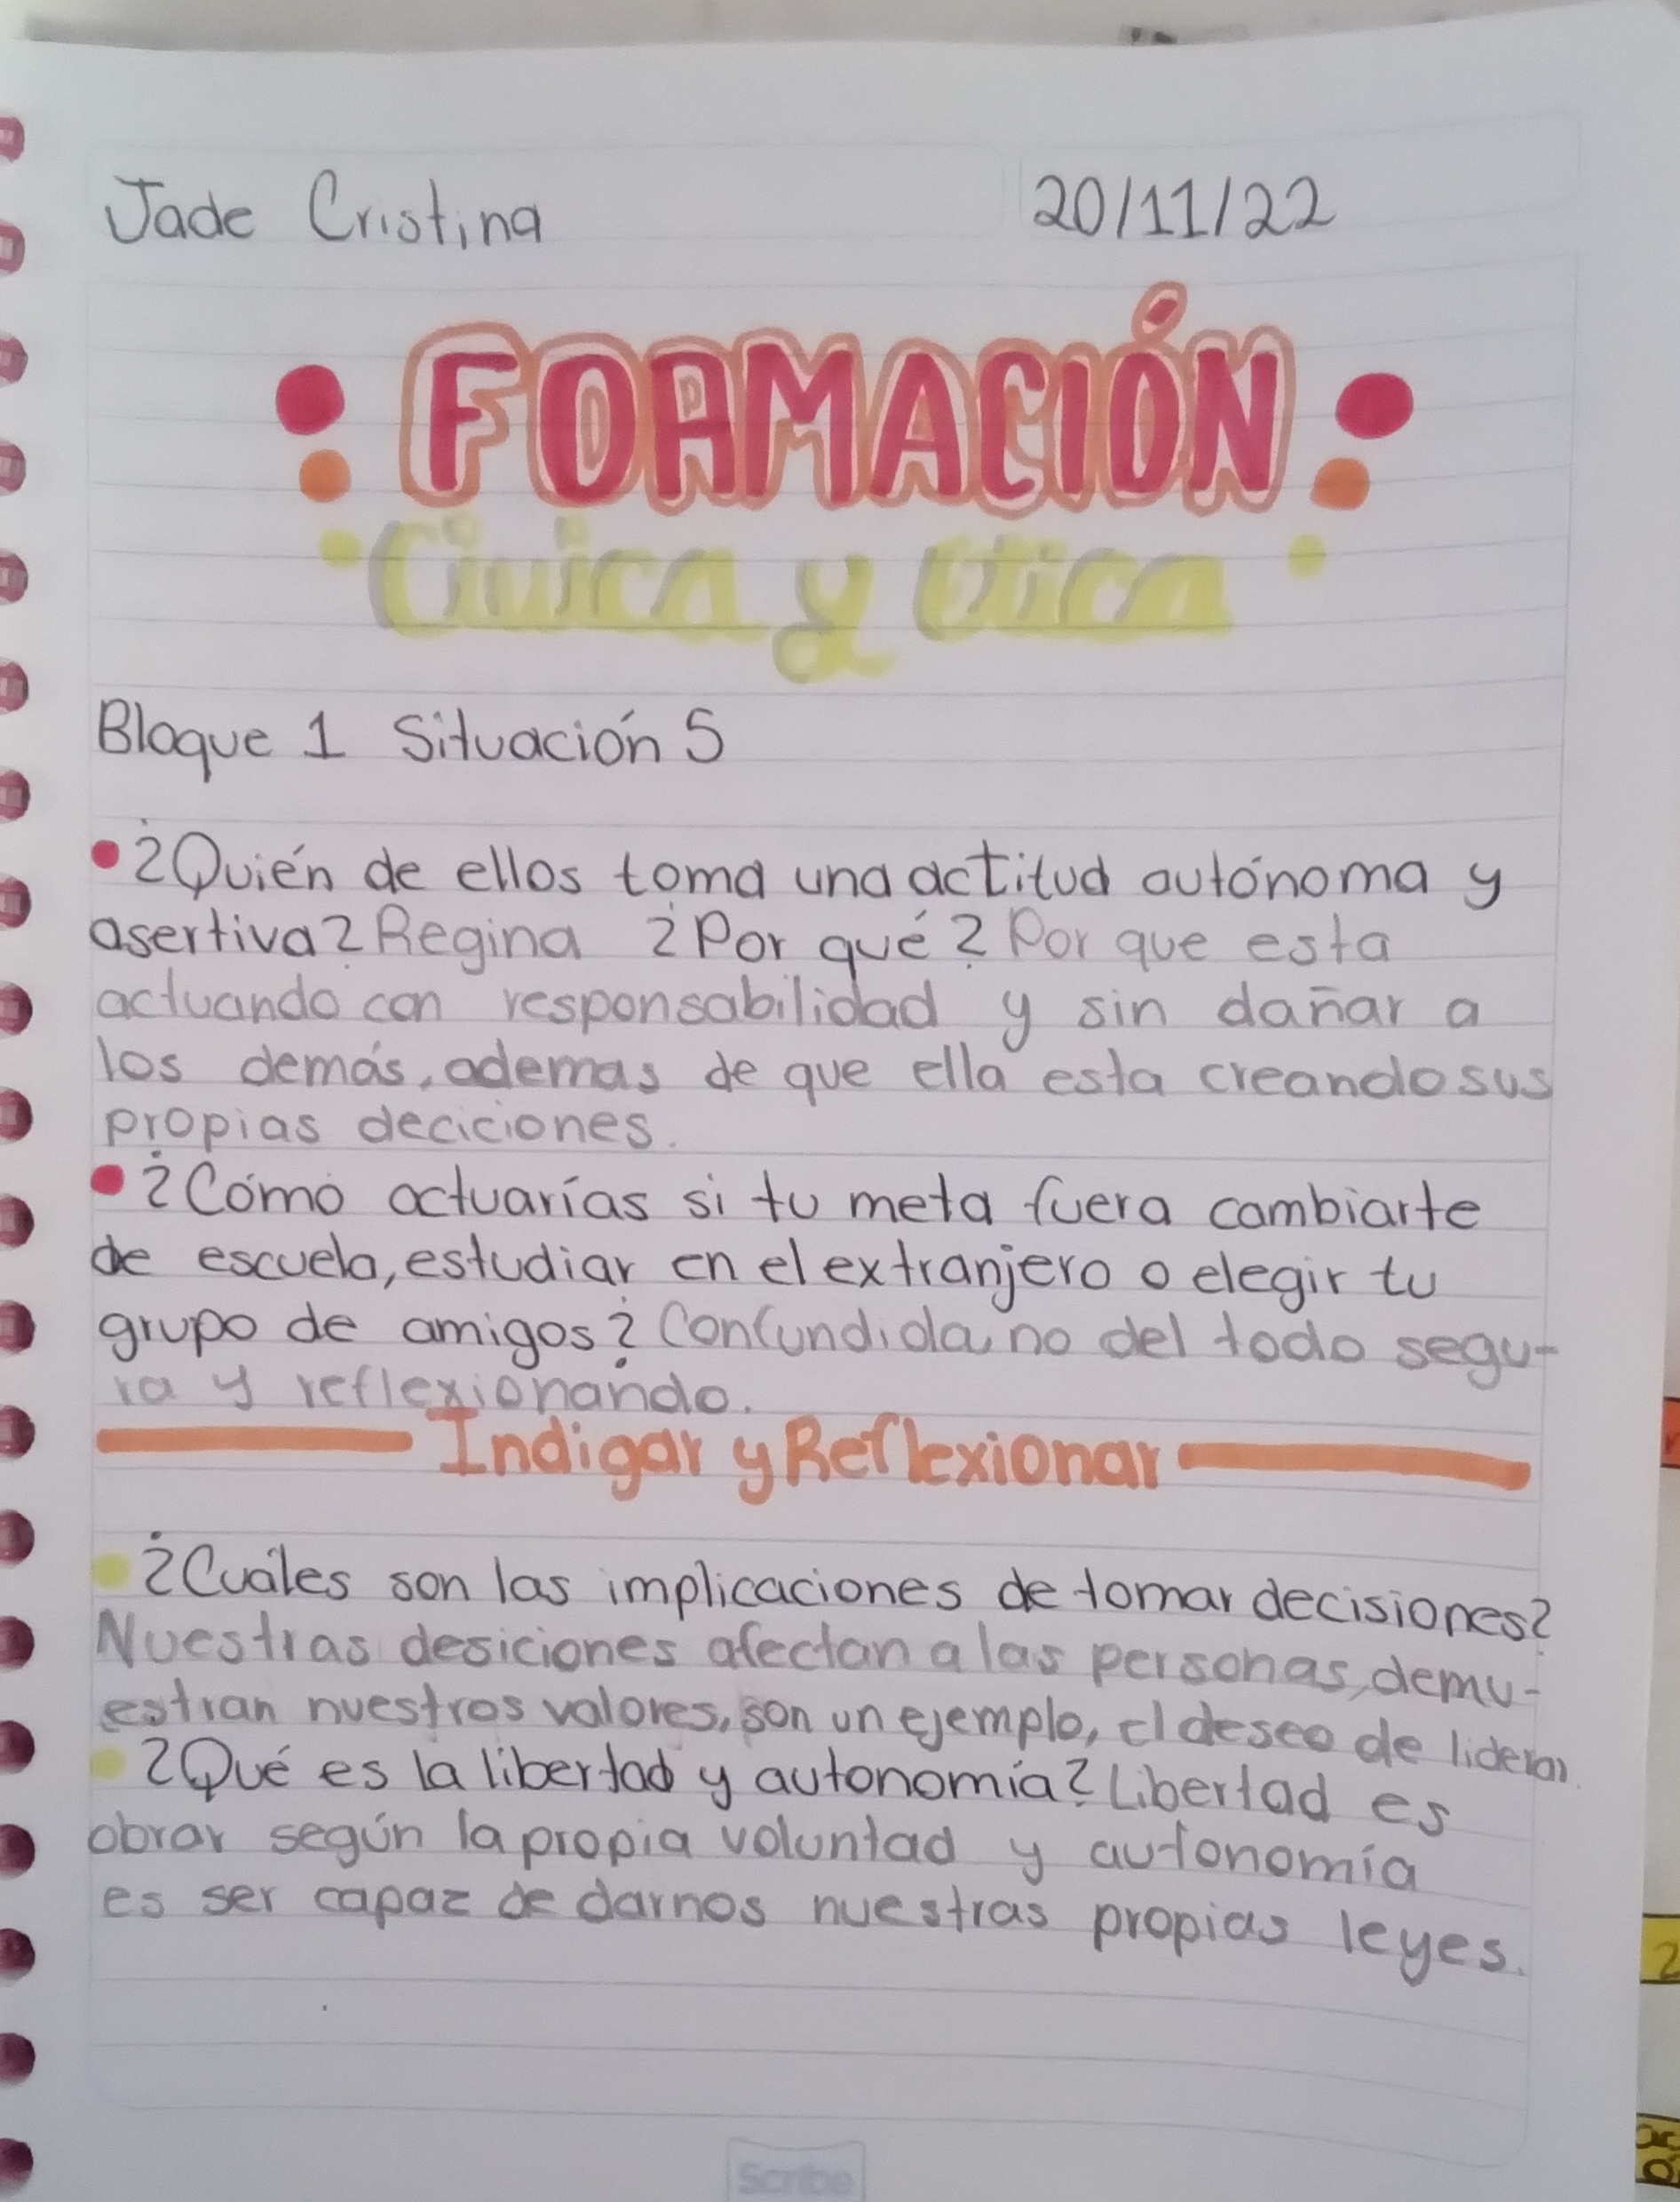 Jade Cristina 20/11/22
FORMACIÓN
Civica y etica
Bloque 1 Situación 5
• ¿Quién de ellos toma una actitud autónoma y
asertiva? Regina ¿Por qué? Por que esta
actuando con responsabilidad y sin dañar a
los demás, ademas de que ella esta creando sus
propias deciciones.
• ¿Cómo actuarías si tu meta fuera cambiarte
de escuela, estudiar en el extranjero o elegir tu
grupo de amigos? Confundida, no del todo segu-
ra y reflexionando.
Indigar y Reflexionar
• ¿Cuáles son las implicaciones de tomar decisiones?
Nuestras desiciones afectan a las personas, demu-
estran nuestros valores, son un ejemplo, el deseo de liderar.
• ¿Qué es la libertad y autonomía? Libertad es
obrar según la propia voluntad y autonomía
es ser capaz de darnos nuestras propias leyes.
Scribe
2